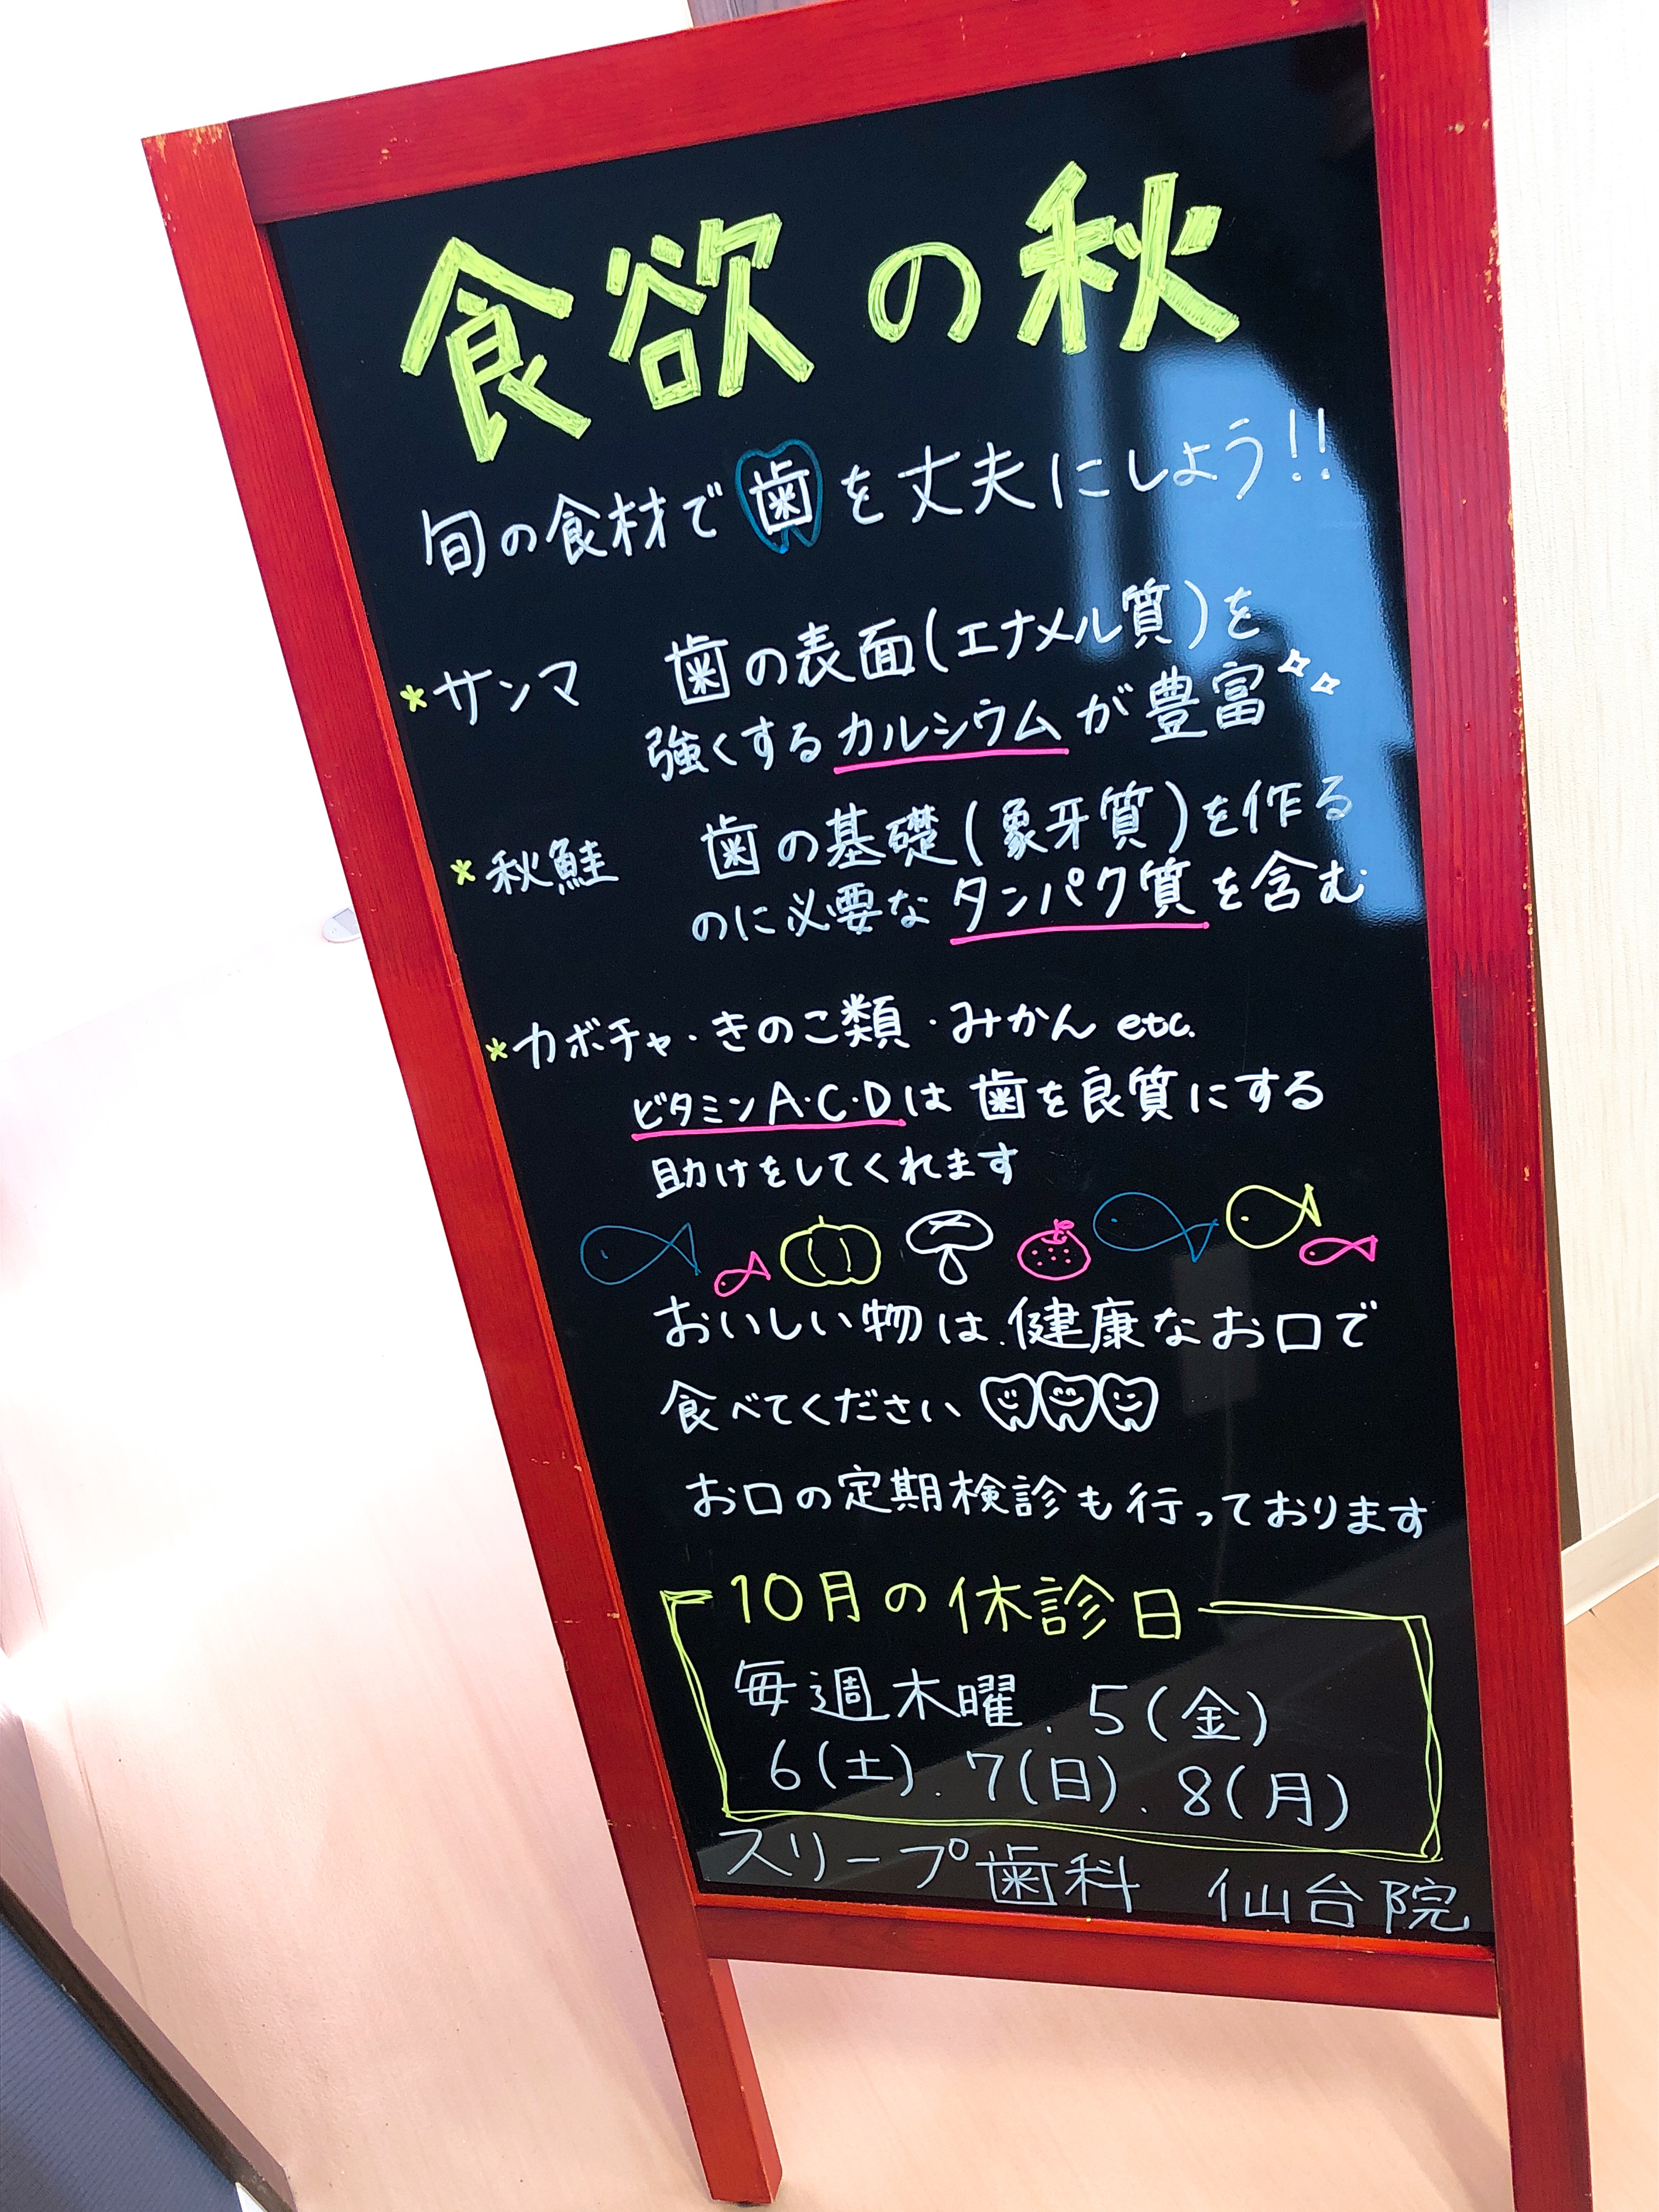 食欲の秋
旬の食材で歯を丈夫にしよう!!
*サンマ 歯の表面(エナメル質)を
強くするカルシウムが豊富
*秋鮭 歯の基礎(象牙質)を作る
のに必要なタンパク質を含む
*カボチャ・きのこ類・みかん etc.
ビタミンA・C・Dは歯を良質にする
助けをしてくれます
おいしい物は、健康なお口で
食べてください
お口の定期検診も行っております
10月の休診日
毎週木曜、5(金)
6(土)、7(日)、8(月)
スリープ歯科 仙台院